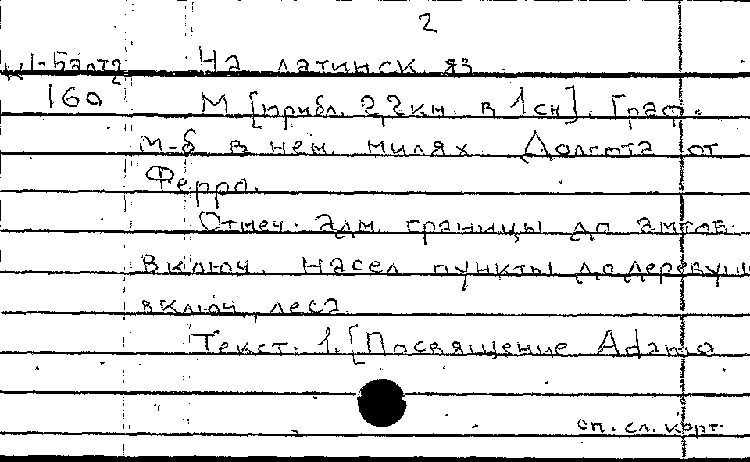 2
К1-Балт2 На латинск яз
160 М [прибл. 2,2км в 1см]. Граф.
м-б в нем. милях. Долгота от
Ферро.
Отмеч. адм. границы до амтов
включ. насел пункты до деревуш
включ, леса
Текст: 1. [Посвящение Adamo
сп. сл. карт.